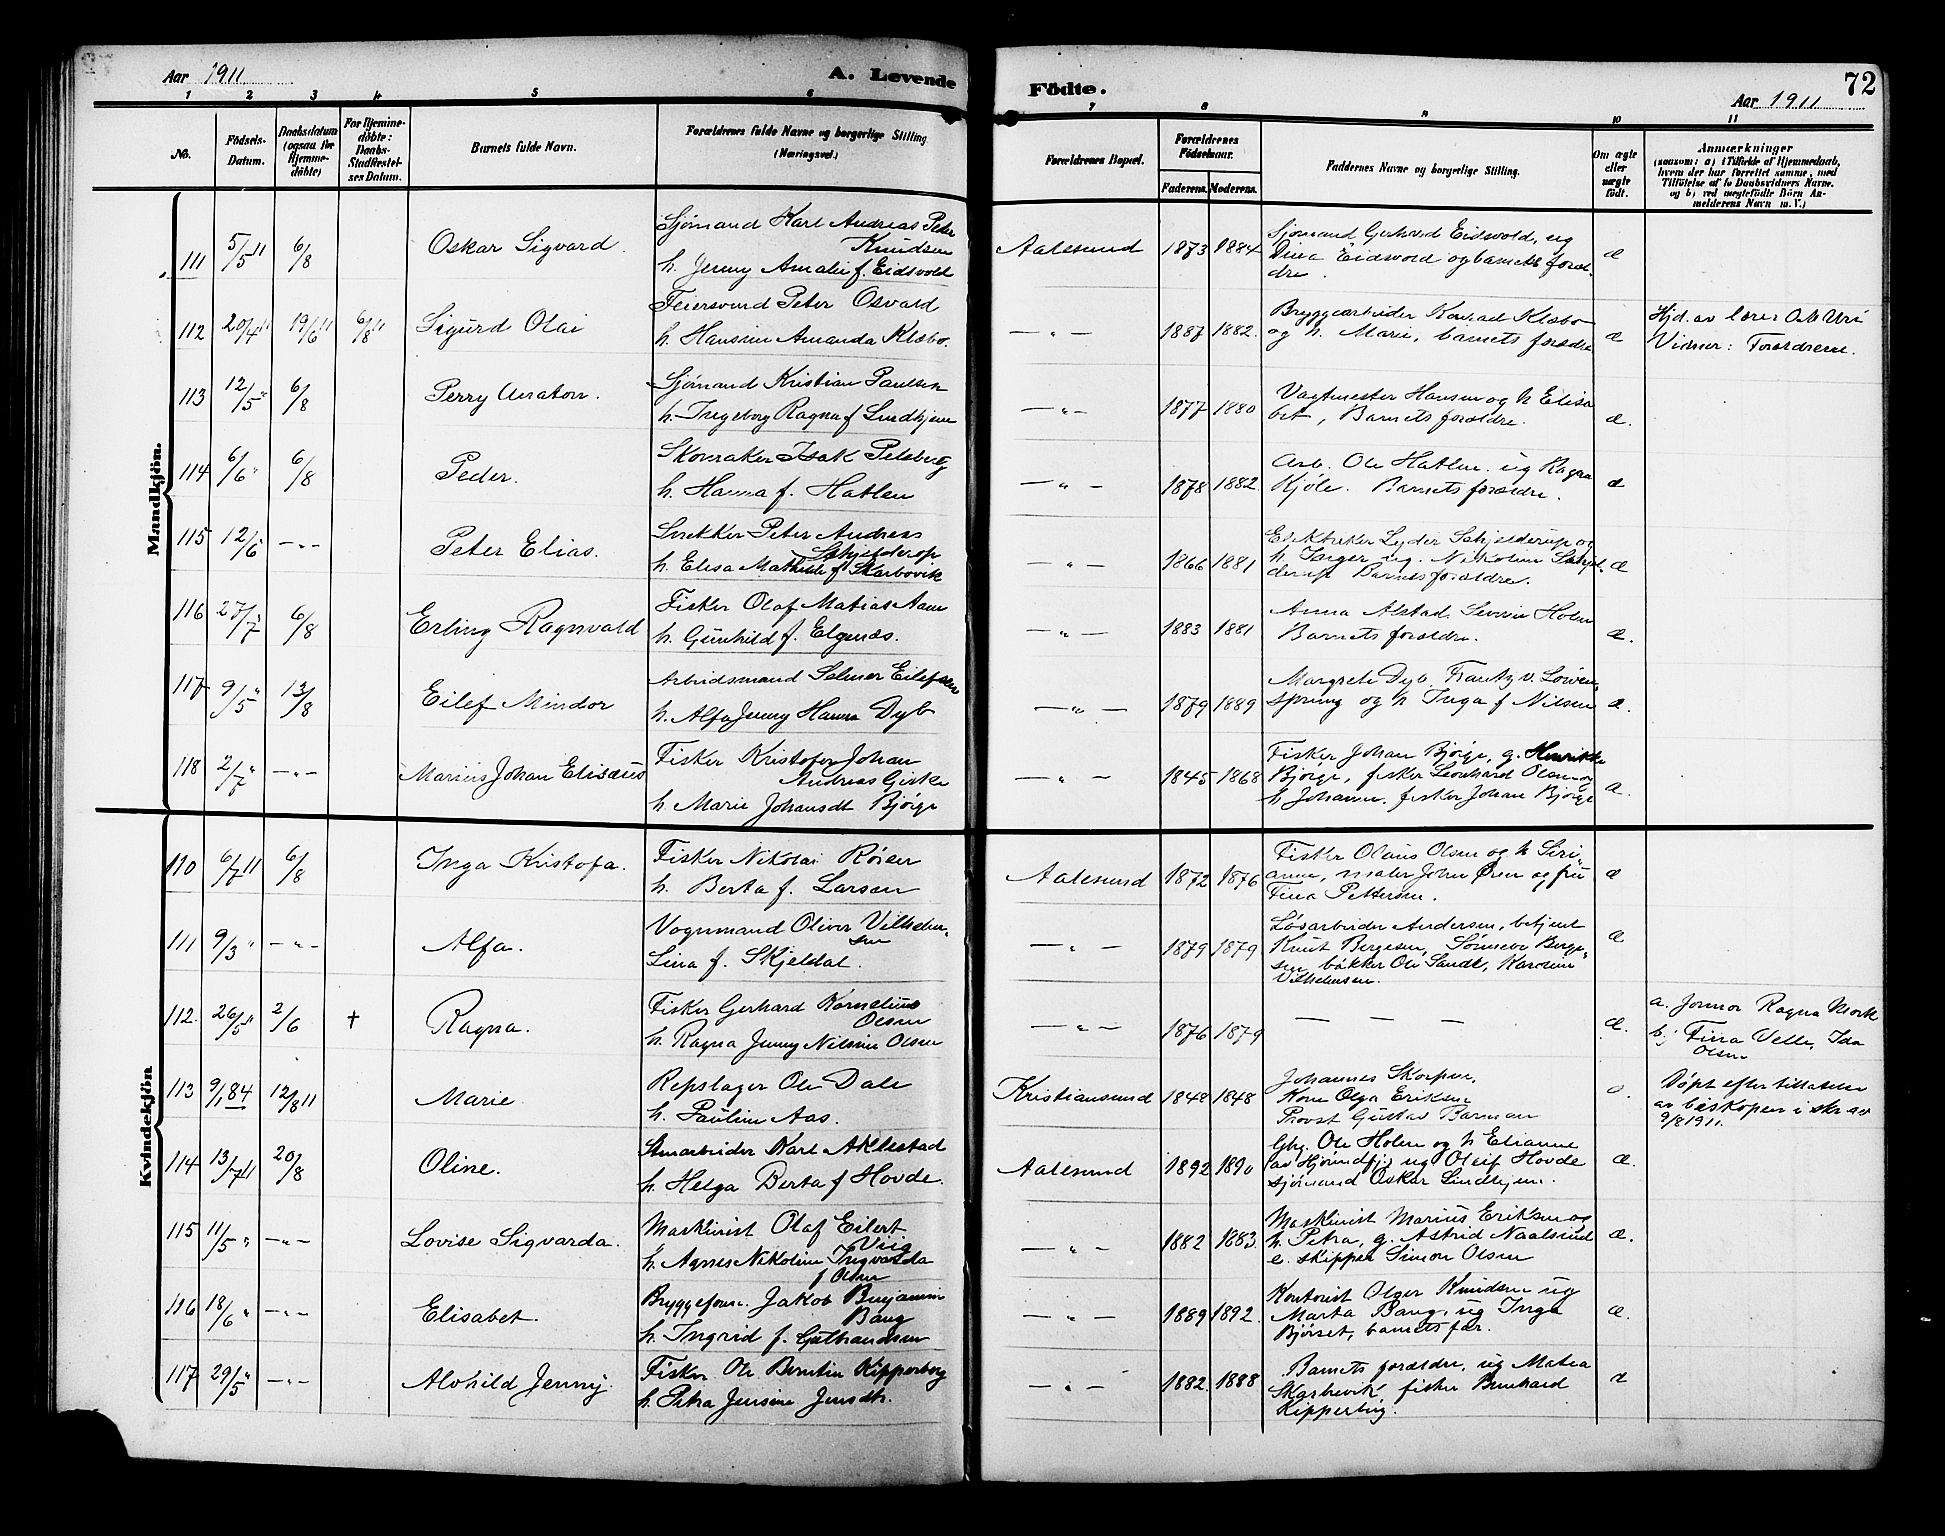 Aar 1911
A. Levende
Födte.
72
Aar 1911
1 2 3 4 5 6 7 8 9 10 11
No.
Födsels-
Datum.
Daabsdatum
(ogsaa for
Hjemme-
döbte)
For Hjemme-
döbte:
Daabs-
Stadfæstel-
ses Datum.
Barnets fulde Navn.
Forældrenes fulde Navne og borgerlige Stilling
(Næringsvei.)
Forældrenes Bopæl.
Forældrenes
Födselsaar.
Faderens. Moderens.
Faddernes Navne og borgerlige Stilling.
Om ægte
eller
uægte
født.
Anmærkninger
(saasom: a) i Tilfælde af Hjemmedaab,
hvem der har forrettet samme, med
Tilföielse af to Daabsvidners Navne.
og b) ved uægtefödte Börn An-
melderens Navn m. V.)
Mandkjön.
111 5/5 11 6/8 Oskar Sigvard.
Sjømand Karl Andreas Peter
Knudsen
h. Jenny Amalie f. Eidsvold
Aalesund 1873 1884
Sjømand Gerhard Eidsvold, ug
Dina Eidsvold og barnets foræl-
dre.
æ
112 20/4 11 19/6 11 6/8 11 Sigurd Olai
Feiersvend Peter Osvald
h. Hansine Amanda Klæbo.
— " — 1887 1882.
Bryggearbeider Konrad Klæbo
og h. Marie, barnets forældre
æ
Hjd. av lærer O. M. Uri
Vidner: Forældrene.
113 12/5 " 6/8 Perry Anaton.
Sjømand Kristian Paulsen
h. Ingeborg Ragna f. Lindhjem
— " — 1877 1880
Vagtmester Hansen og h Elisa
bet, Barnets forældre.
æ.
114 6/6 " 6/8 Peder.
Skomaker Isak Pilskog
h. Hanna f. Hatlen
— " — 1878 1882.
Arb. Ole Hatlen. ug Ragna
Kjöle. Barnets forældre.
æ
115 12/6 — " — Peter Elias.
Snekker Peter Andreas
Schjelderup
h. Elisa Mathilde f. Skarbovik
— " — 1866 1881
Lyder Schjelderup og
h. Inger ug. Nikoline Schjel-
derup Barnets forældre.
æ
116 27/7 " 6/8 Erling Ragnvald
Fisker Olaf Matias Aam
h. Gunhild f. Elgenæs.
— " — 1883 1881
Anna Alstad Severin Holen
Barnets forældre.
æ.
117 9/5 " 13/8 Eilef Mindor
Arbeidsmand Selmer Eilefsen
h. Alfa Jenny Hanna Dyb
— " — 1879 1889
Margrete Dyb, Frantz v. Löwen-
sprung og h Inga f Nilsen
æ.
118 2/7 " — " — Marius Johan Elisæus
Fisker Kristofer Johan
Andreas Giske
h. Marie Johansdt Bjørge
— " — 1845 1868
Fisker Johan Bjørge, g. Henrikke
Bjørge, fisker Leonhard Olsen og
h Johanne. fisker Johan Bjørge
æ.
Kvindekjön
110 6/7 11 6/8 Inga Kristofa.
Fisker Nikolai Röser
h. Berta f. Larsen
Aalesund 1872 1876
Fisker Olaus Olsen og h Siri-
anne, maler John Ören og fru
Fina Pettersen.
æ
111 9/3 " — " — Alfa.
Vognmand Oliver Vilhelm-
sen
Lina f. Skjeldal.
— " — 1879 1879
Løsarbeider Andersen, betjent
Knut Bergesen, Sönneve Berge-
sen, bakker Ole Sandt, Karoline
Vilhelmsen.
æ
112. 26/5 " 2/6 † Ragna.
Fisker Gerhard Kornelius
Olsen
h. Ragna Jenny Nilsine Olsen
— " — 1876 1879
— — —
æ.
a. Jormor Ragna Mork
b. Fina Velle, Ida
Olsen
113 9/1 84 12/8 11 Marie.
Repslager Ole Dale
h. Pauline Aas.
Kristiansund 1848 1848
Johannes Skorpen,
Kone Olga Eriksen
Provst Gustav Barman
Döpt efter tillatelse
av biskopen i skr av
9/8 1911.
114 13/7 11 20/8 Oline.
Stenarbeider Karl Aklestad
h. Helga Berta f Hovde.
Aalesund 1892 1890
Gbg. Ole Holen og h Elianne
av Hjørundfj. ug Oleif Hovde
sjømand Oskar Lindhjem.
æ.
115 11/5 " — " — Lovise Sigvarda.
Maskinist Olaf Eilert
Viig
h. Agnes Nikoline Ingvarda
f Olsen
— " — 1882 1883.
Maskinist Marius Eriksen og
h. Petra, g. Astrid Naalsund
e. skipper Simon Olsen
æ.
116 18/6 " — " — Elisabet.
Bryggeform. Jakob Benjamin
Bang
h. Ingrid f. Gulbrandsen
— " — 1889 1892.
Kontorist Olger Knudsen ug
Marta Bang, ug Inga
Bjørset, barnets far.
æ.
117 29/5 " — " — Alvhild Jenny
Fisker Ole Berntin Kipperberg
h. Petra Jensine Jensdtr.
— " — 1882. 1888
Barnets forældre, ug Matea
Skarbøvik, fisker Bernhard
Kipperberg.
æ